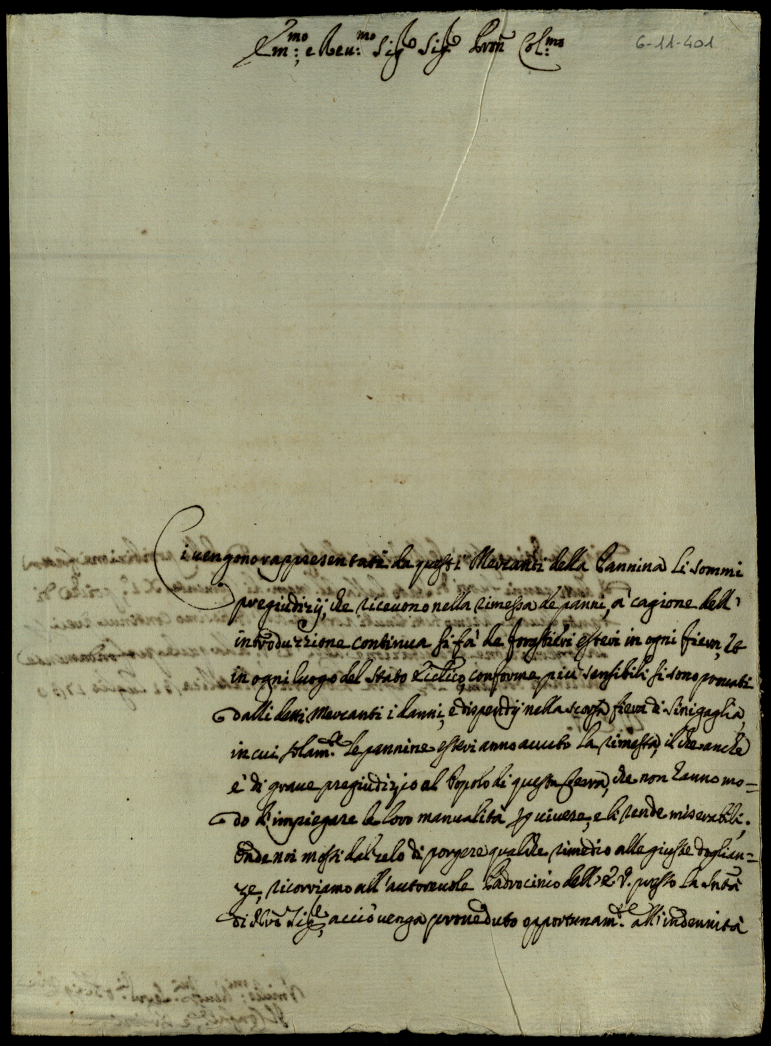 Em:mo e Reu:mo Sig.r Sig.r Pron Col:mo
6-11-401
Ci uengono rappresentati da questi Mercanti della Pannina li sommi
pregiudizij, che riceuono nella rimessa de panni, a cagione dell'
introduzzione continua si fà de forastieri esteri in ogni fiera, et
in ogni luogo del Stato Eccl.co, conforme più sensibili si sono prouati
dalli detti Mercanti i danni, e dispendij nella scorsa fiera di Sinigaglia,
in cui solam.te le pannine esteri anno auuto la rimessa, il che anche
è di graue pregiudizio al Popolo di questa Terra, che non hanno mo=
do d'impiegare le loro manualità per uiuere, e li rende miserabili.
Onde noi mossi dal zelo di porgere qualche rimedio alle giuste doglian=
ze, ricorriamo all'autoreuole Padrocinio dell'E.V. presso la Sntà
di Nro Sig.re, acciò uenga proueduto opportunam.te all'indennità